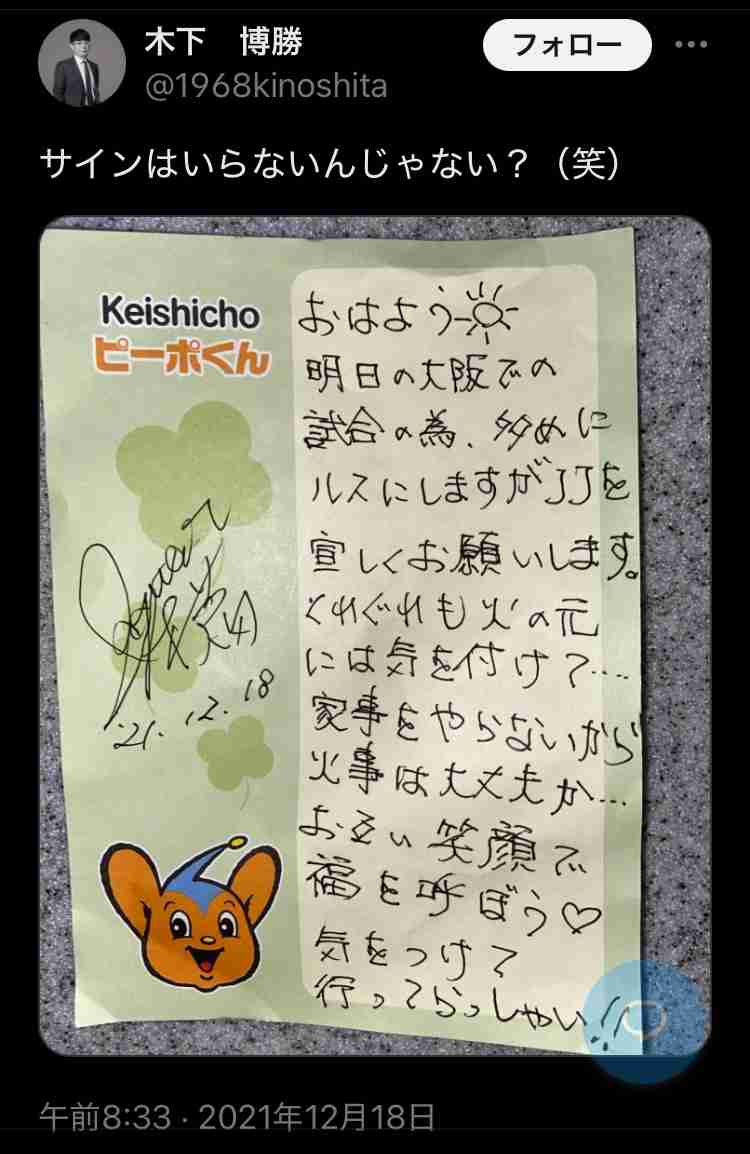 木下　博勝
フォロー
@1968kinoshita
サインはいらないんじゃない？（笑）
Keishicho
ピーポくん
おはよう
明日の大阪での
試合の為、多めに
ルスにしますがJJを
宜しくお願いします。
くれぐれも火の元
には気を付けて....
家事をやらないから
火事は大丈夫か...
お互い笑顔で
福を呼ぼう♡
気をつけて
行ってらっしゃい!!
'21.12.18
午前8:33 · 2021年12月18日